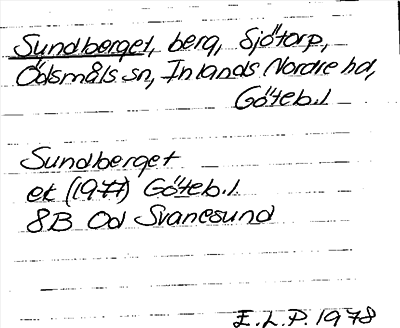 Sundberget, berg, Sjötorp,
Ödsmåls sn, Inlands Nordre hd,
Göteb.l
Sundberget
ek (1977) Göteb.l.
8B Od Svanesund
E.L.P. 1978